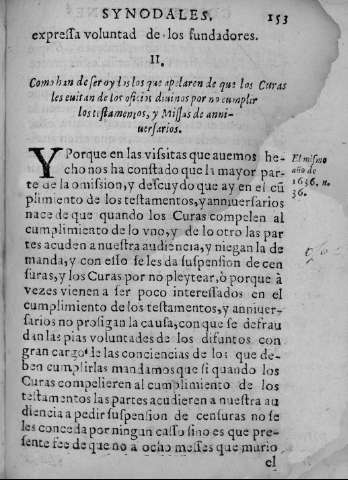 SYNODALES. 153
expressa voluntad de los fundadores.
II.
Como han de ser oydos los que apelaren de que los Curas
les euitan de los oficios diuinos por no cumplir
los testamentos, y Missas de anni-
uersarios.
Y Porque en las vissitas que auemos he-
cho nos ha constado que la mayor par-
te de la omission, y descuydo que ay en el cũ
plimiento de los testamentos, y anniuersarios
nace de que quando los Curas compelen al
cumplimiento de lo vno, y de lo otro las par
tes acuden a nuestra audiencia, y niegan la de
manda, y con esso se les da suspension de cen
suras, y los Curas por no pleytear, ò porque à
vezes vienen a ser poco interessados en el
cumplimiento de los testamentos, y anniuer-
sarios no prosigan la causa, con que se defrau
dan las pias voluntades de los difuntos con
gran cargo de las conciencias de los que de-
ben cumplirlas mandamos que si quando los
Curas compelieren al cumplimiento de los
testamentos las partes acudieren a nuestra au
diencia a pedir suspension de censuras no se
les conceda por ningun casso sino es que pre-
sente fee de que no a ocho messes que murio
el
El mismo
año de
1636. n.
36.